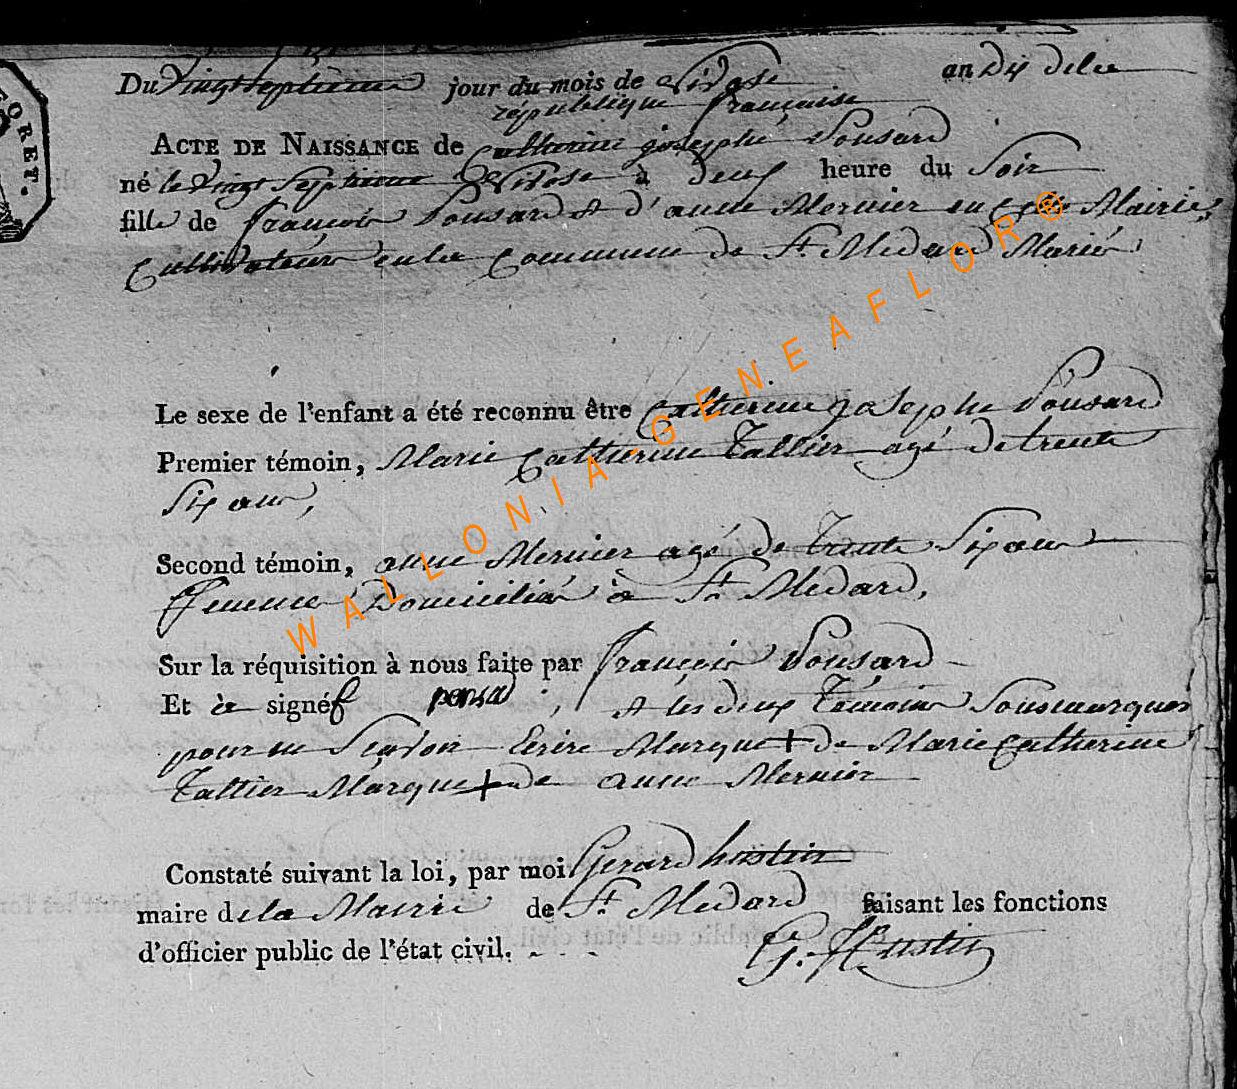 FORET.
Du vingt septieme jour du mois de Nivose an Dix de la
république française
ACTE DE NAISSANCE de Catherine josephe Ponsard
né le vingt Septieme Nivose à deux heure du Soir
fille de françois Ponsard & d'anne Mernier en cette Mairie,
Cultivateurs en la Commune de St. Medard Mariés
Le sexe de l'enfant a été reconnu être Catherine josephe Ponsard
Premier témoin, Marie Catherine Tallier agé de trente
Six ans,
Second témoin, anne Mernier agé de trente Six ans
femme Domiciliés à St Medard,
Sur la réquisition à nous faite par françois Ponsard
Et à signé f ponsad & les deux Témoins Sousmarques
pour ne Scavoir Ecrire Marque + de Marie Catherine
Tallier Marque + de anne Mernier
Constaté suivant la loi, par moi Gerard hustin
maire de la Mairie de St. Medard faisant les fonctions
d'officier public de l'état civil.
G. Hustin
WALLONIA - GENEAFLOR®